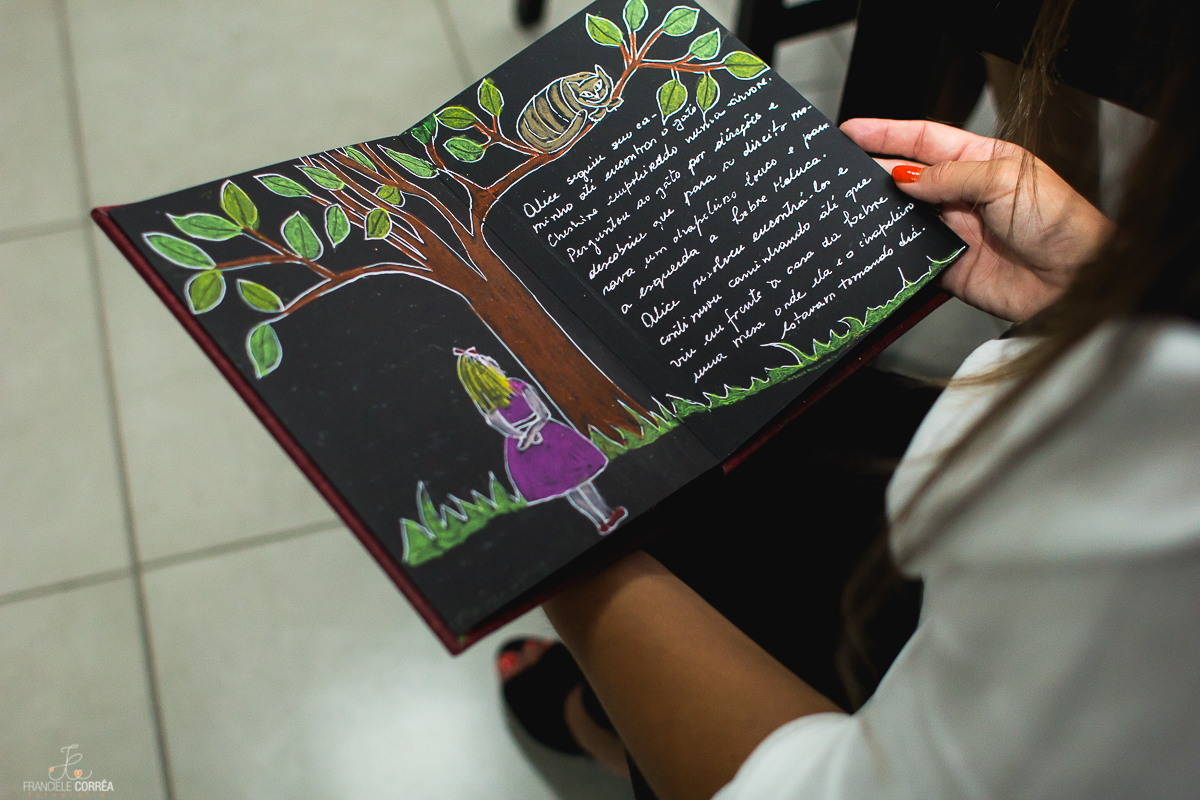 Alice seguiu seu ca-
minho até encontrar o gato
Cheshire empoleirado numa árvore.
Perguntou ao gato por direções e
descobriu que para a direita mo-
rava um chapeleiro louco e para
a esquerda a Lebre Maluca.
Alice resolveu encontrá-los e
continuou caminhando até que
viu em frente à casa da Lebre
uma mesa onde ela e o chapeleiro
estavam tomando chá.
FRANCIELE CORRÊA